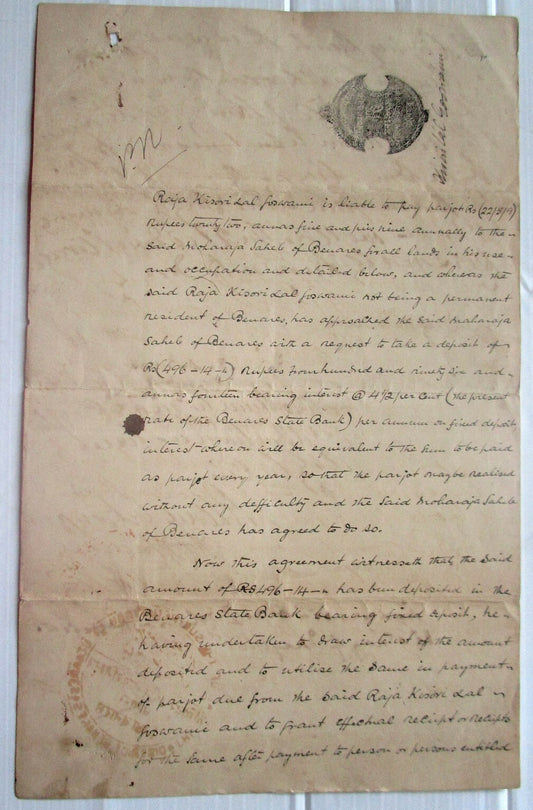 Kisori Lal Goswami
Raja Kisori Lal Goswami is liable to pay parjot Rs (22/5/9)
Rupees twenty two, annas five and pies nine annually to the
said Moharaja Saheb of Benares for all lands in his use
and occupation and detailed below, and whereas the
said Raja Kisori Lal Goswami not being a permanent
resident of Benares, has approached the said Maharaja
Saheb of Benares with a request to take a deposit of
Rs (496-14-) Rupees four hundred and ninety six and
annas fourteen bearing interest @ 4 1/2 per cent (the present
rate of the Benares State Bank) per annum on fixed deposit,
interest where on will be equivalent to the sum to be paid
as parjot every year, so that the parjot may be realised
without any defficulty and the Said Moharaja Saheb
of Benares has agreed to do so.
Now this agreement witnesseth that, the said
amount of RS 496-14- has been deposited in the
Benares State Bank bearing fixed deposit, he
having undertaken to draw interest of the amount
deposited and to utilise the same in payment
of parjot due from the said Raja Kisori Lal
Goswami and to grant effectual receipt or receipts
for the same after payment to person or persons entitled